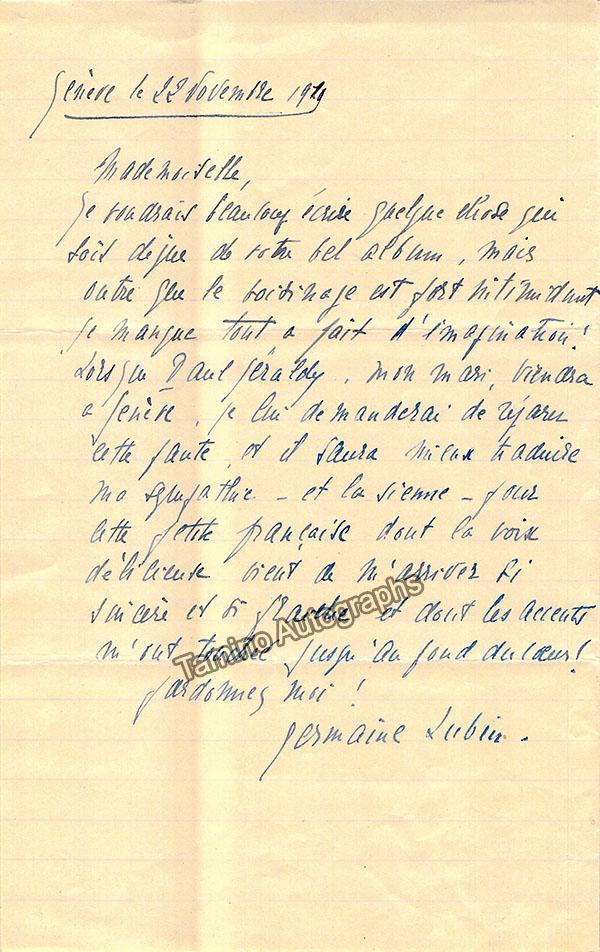 Genève le 22 Novembre 1919
Mademoiselle,
je voudrais beaucoup écrire quelque chose qui
soit digne de votre bel album, mais
outre que le voisinage est fort intimidant
je manque tout a fait d'imagination!
Lorsque Paul Géraldy, mon mari, viendra
a Genève, je lui demanderai de réparer
cette faute, et il saura mieux traduire
ma sympathie - et la sienne - pour
cette petite française dont la voix
délicieuse vient de m'arriver si
sincère et si fraiche et dont les accents
m'ont touchée jusqu'au fond du cœur!
pardonnez moi!
Germaine Lubin.
Tamino Autographs